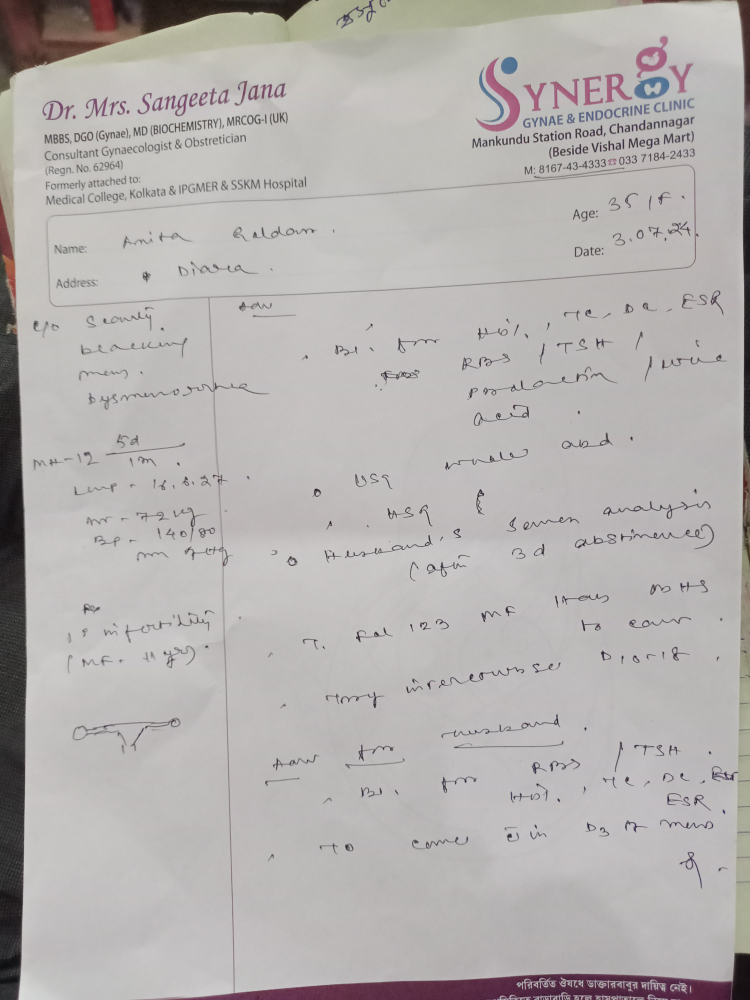 Dr. Mrs. Sangeeta Jana
MBBS, DGO (Gynae), MD (BIOCHEMISTRY), MRCOG-I (UK)
Consultant Gynaecologist & Obstetrician
(Regn. No. 62964)
Formerly attached to:
Medical College, Kolkata & IPGMER & SSKM Hospital
SYNERGY
GYNAE & ENDOCRINE CLINIC
Mankundu Station Road, Chandannagar
(Beside Vishal Mega Mart)
M: 8167-43-4333 ☎ 033 7184-2433
Name: Anita
Age: 35/F.
Address: Diara.
Date: 3.07.24.
c/o Scanty
mens.
Dysmenorrhea
MH-12 5d
1m.
LMP -
wt - 72 kg
BP - 140/80
mm of Hg
1° infertility
(MF. 11 yrs).
Adv
Bl. for Hb%, TC, DC, ESR
RBS / TSH /
Prolactin / uric
acid.
USG whole abd.
HSG
Husband's Semen analysis
(after 3d abstinence)
T. Fol 123 MF 1 tab
to cont.
Try intercourse D10-18.
Adv for husband.
Bl. for RBS / TSH.
Hb%, TC, DC,
ESR.
To come in D3 of mens
পরিবর্তিত ঔষধে ডাক্তারবাবুর দায়িত্ব নেই।